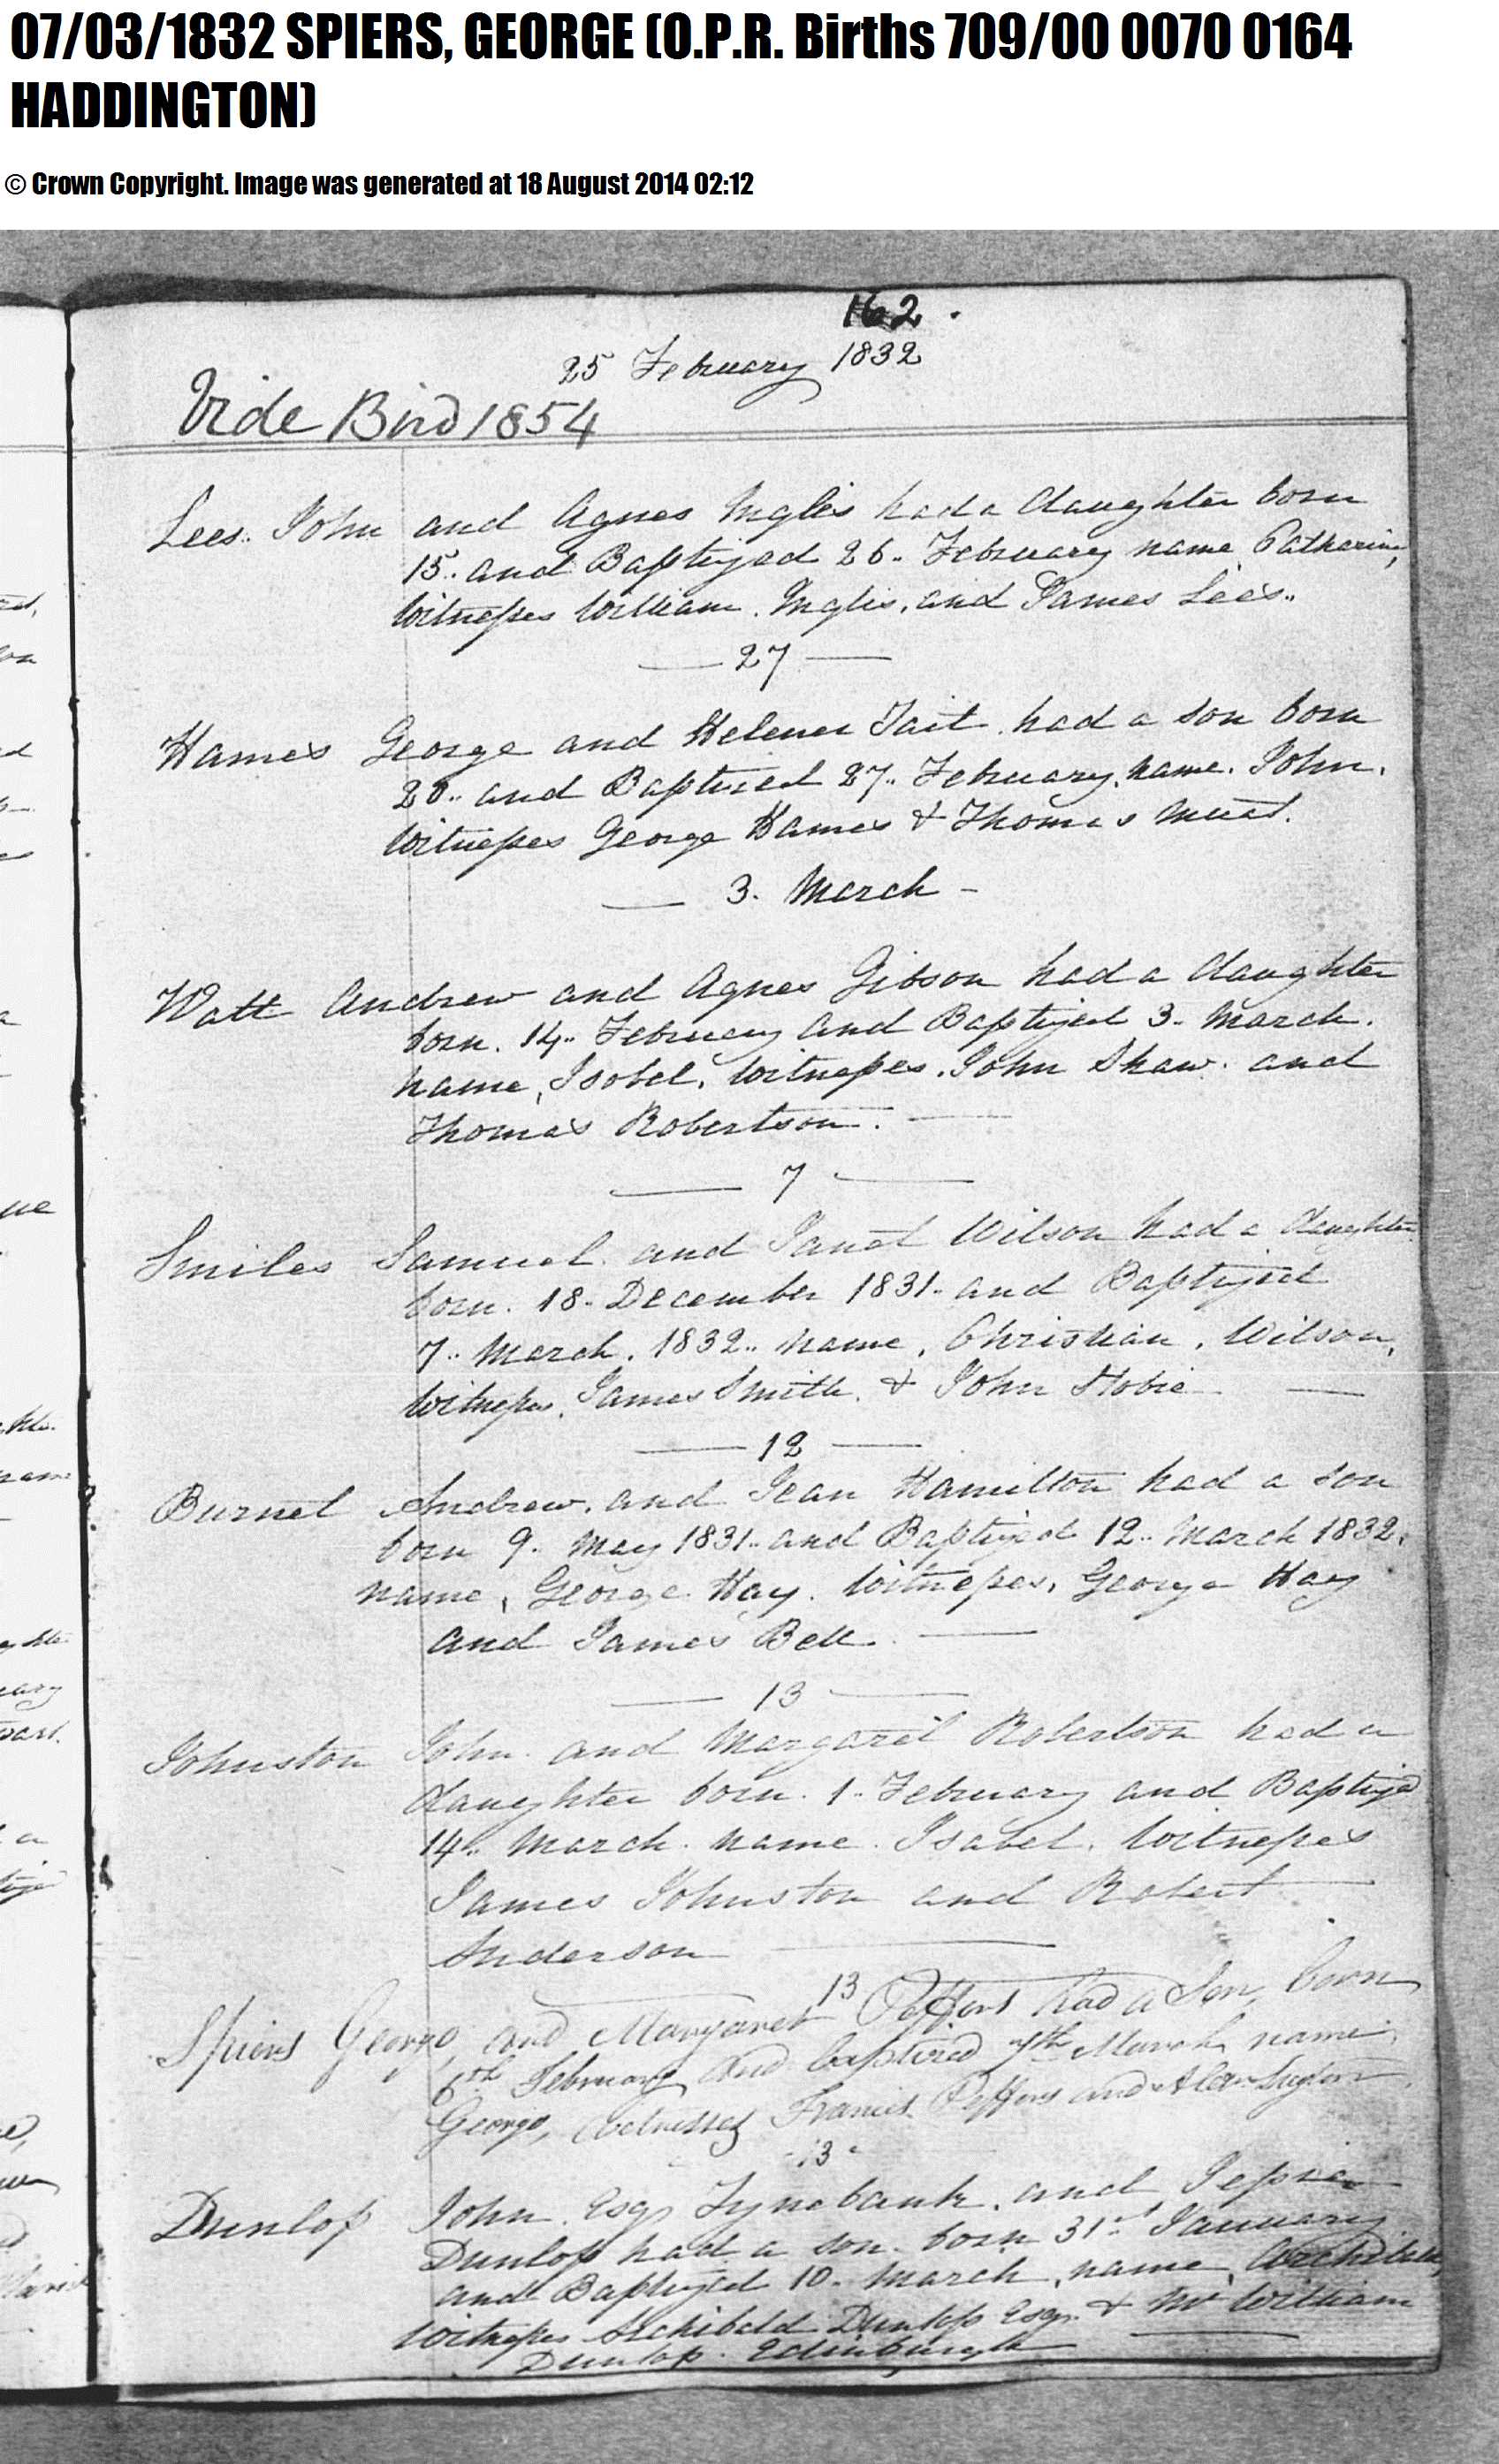 07/03/1832 SPIERS, GEORGE (O.P.R. Births 709/00 0070 0164
HADDINGTON)
© Crown Copyright. Image was generated at 18 August 2014 02:12
162.
25 February 1832
Vide Bird 1854
Lees.. John and Agnes Inglis had a daughter born
15.. and Baptized 26.. February name Catharine,
Witnesses William. Inglis, and James Lees..
— 27 —
Hames George and Helener Tait had a son born
20.. and Baptized 27.. February, name. John.
Witnesses George Hames & Thomas
— 3. March —
Watt Andrew and Agnes Gibson had a daughter
born. 14.. February and Baptized 3.. March.
name, Isobel, Witnesses. John Shaw. and
Thomas Robertson. —
— 7 —
Smiles Samuel and Janet Wilson had a daughter
born. 18.. December 1831.. and Baptized
7.. March. 1832.. name, Christian, Wilson,
Witnesses, James Smith. & John Hobie —
— 12 —
Burnet Andrew, and Jean Hamilton had a son
born 9.. May 1831.. and Baptized 12.. March 1832.
name, George Hay. Witnesses, George Hay
and James Bell. —
— 13 —
Johnston John. and Margaret Robertson had a
daughter born. 1.. February and Baptized
14.. March. name. Isabel. Witnesses
James Johnston and Robert —
Anderson —
13
Spiers George, and Margaret Peffers had a Son, born
6th February and baptized 7th March name
George, Witnesses Francis Peffers and Alexr
- 13 -
Dunlop John. Esqr Tynebank. and Jessie
Dunlop had a son born 31st January
and Baptized 10.. March, name, Archibald,
Witnesses Archibald Dunlop Esqr. & Mr William
Dunlop. Edinburgh